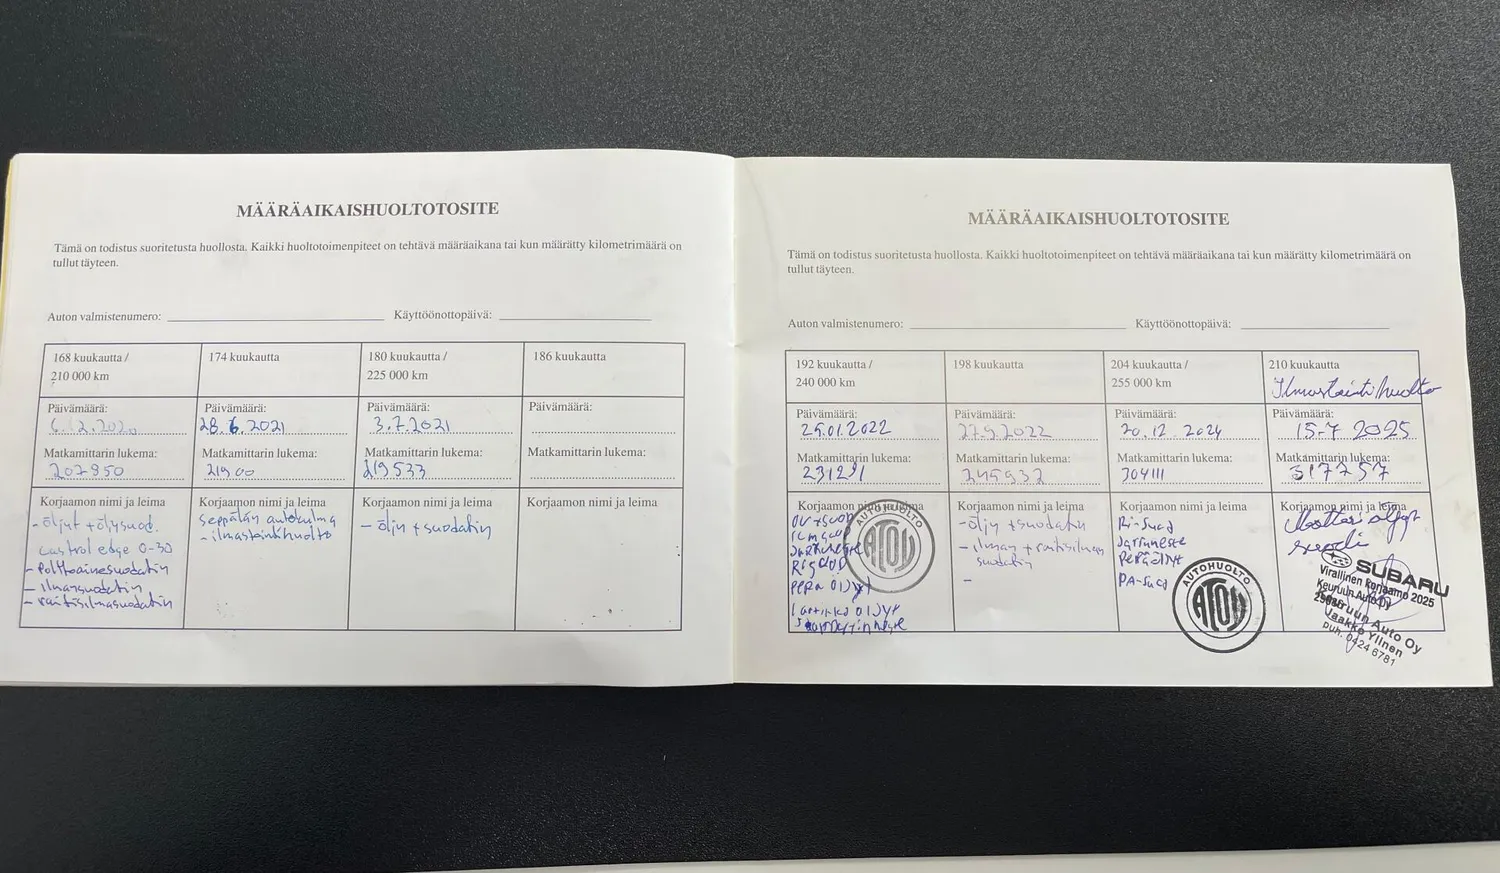 MÄÄRÄAIKAISHUOLTOTOSITE
Tämä on todistus suoritetusta huollosta. Kaikki huoltotoimenpiteet on tehtävä määräaikana tai kun määrätty kilometrimäärä on
tullut täyteen.
Auton valmistenumero: Käyttöönottopäivä:
168 kuukautta /
210 000 km
Päivämäärä:
Matkamittarin lukema:
207850
Korjaamon nimi ja leima
- öljyt + öljysuod.
castrol edge 0-30
- Polttoainesuodatin
- ilmansuodatin
- raitisilmasuodatin
174 kuukautta
Päivämäärä:
28.6.2021
Matkamittarin lukema:
21900
Korjaamon nimi ja leima
seppälän autokulma
- ilmastointihuolto
180 kuukautta /
225 000 km
Päivämäärä:
3.7.2021
Matkamittarin lukema:
219533
Korjaamon nimi ja leima
- öljy + suodatin
186 kuukautta
Päivämäärä:
Matkamittarin lukema:
Korjaamon nimi ja leima
MÄÄRÄAIKAISHUOLTOTOSITE
Tämä on todistus suoritetusta huollosta. Kaikki huoltotoimenpiteet on tehtävä määräaikana tai kun määrätty kilometrimäärä on
tullut täyteen.
Auton valmistenumero: Käyttöönottopäivä:
192 kuukautta /
240 000 km
Päivämäärä:
25.01.2022
Matkamittarin lukema:
231291
Korjaamon nimi ja leima
AUTOHUOLTO
ATOY
198 kuukautta
Päivämäärä:
27.9.2022
Matkamittarin lukema:
245932
Korjaamon nimi ja leima
- öljy + suodatin
- ilman + raitisilman
suodatin
-
204 kuukautta /
255 000 km
Päivämäärä:
20.12.2024
Matkamittarin lukema:
304111
Korjaamon nimi ja leima
Jarruneste
Peräöljyt
AUTOHUOLTO
ATOY
210 kuukautta
Ilmastointi huolto
Päivämäärä:
15-7 2025
Matkamittarin lukema:
317757
Korjaamon nimi ja leima
SUBARU
Virallinen korjaamo 2025
Keuruun Auto Oy
Keuruun Auto Oy
Jaakko Ylinen
puh. 0424 6781